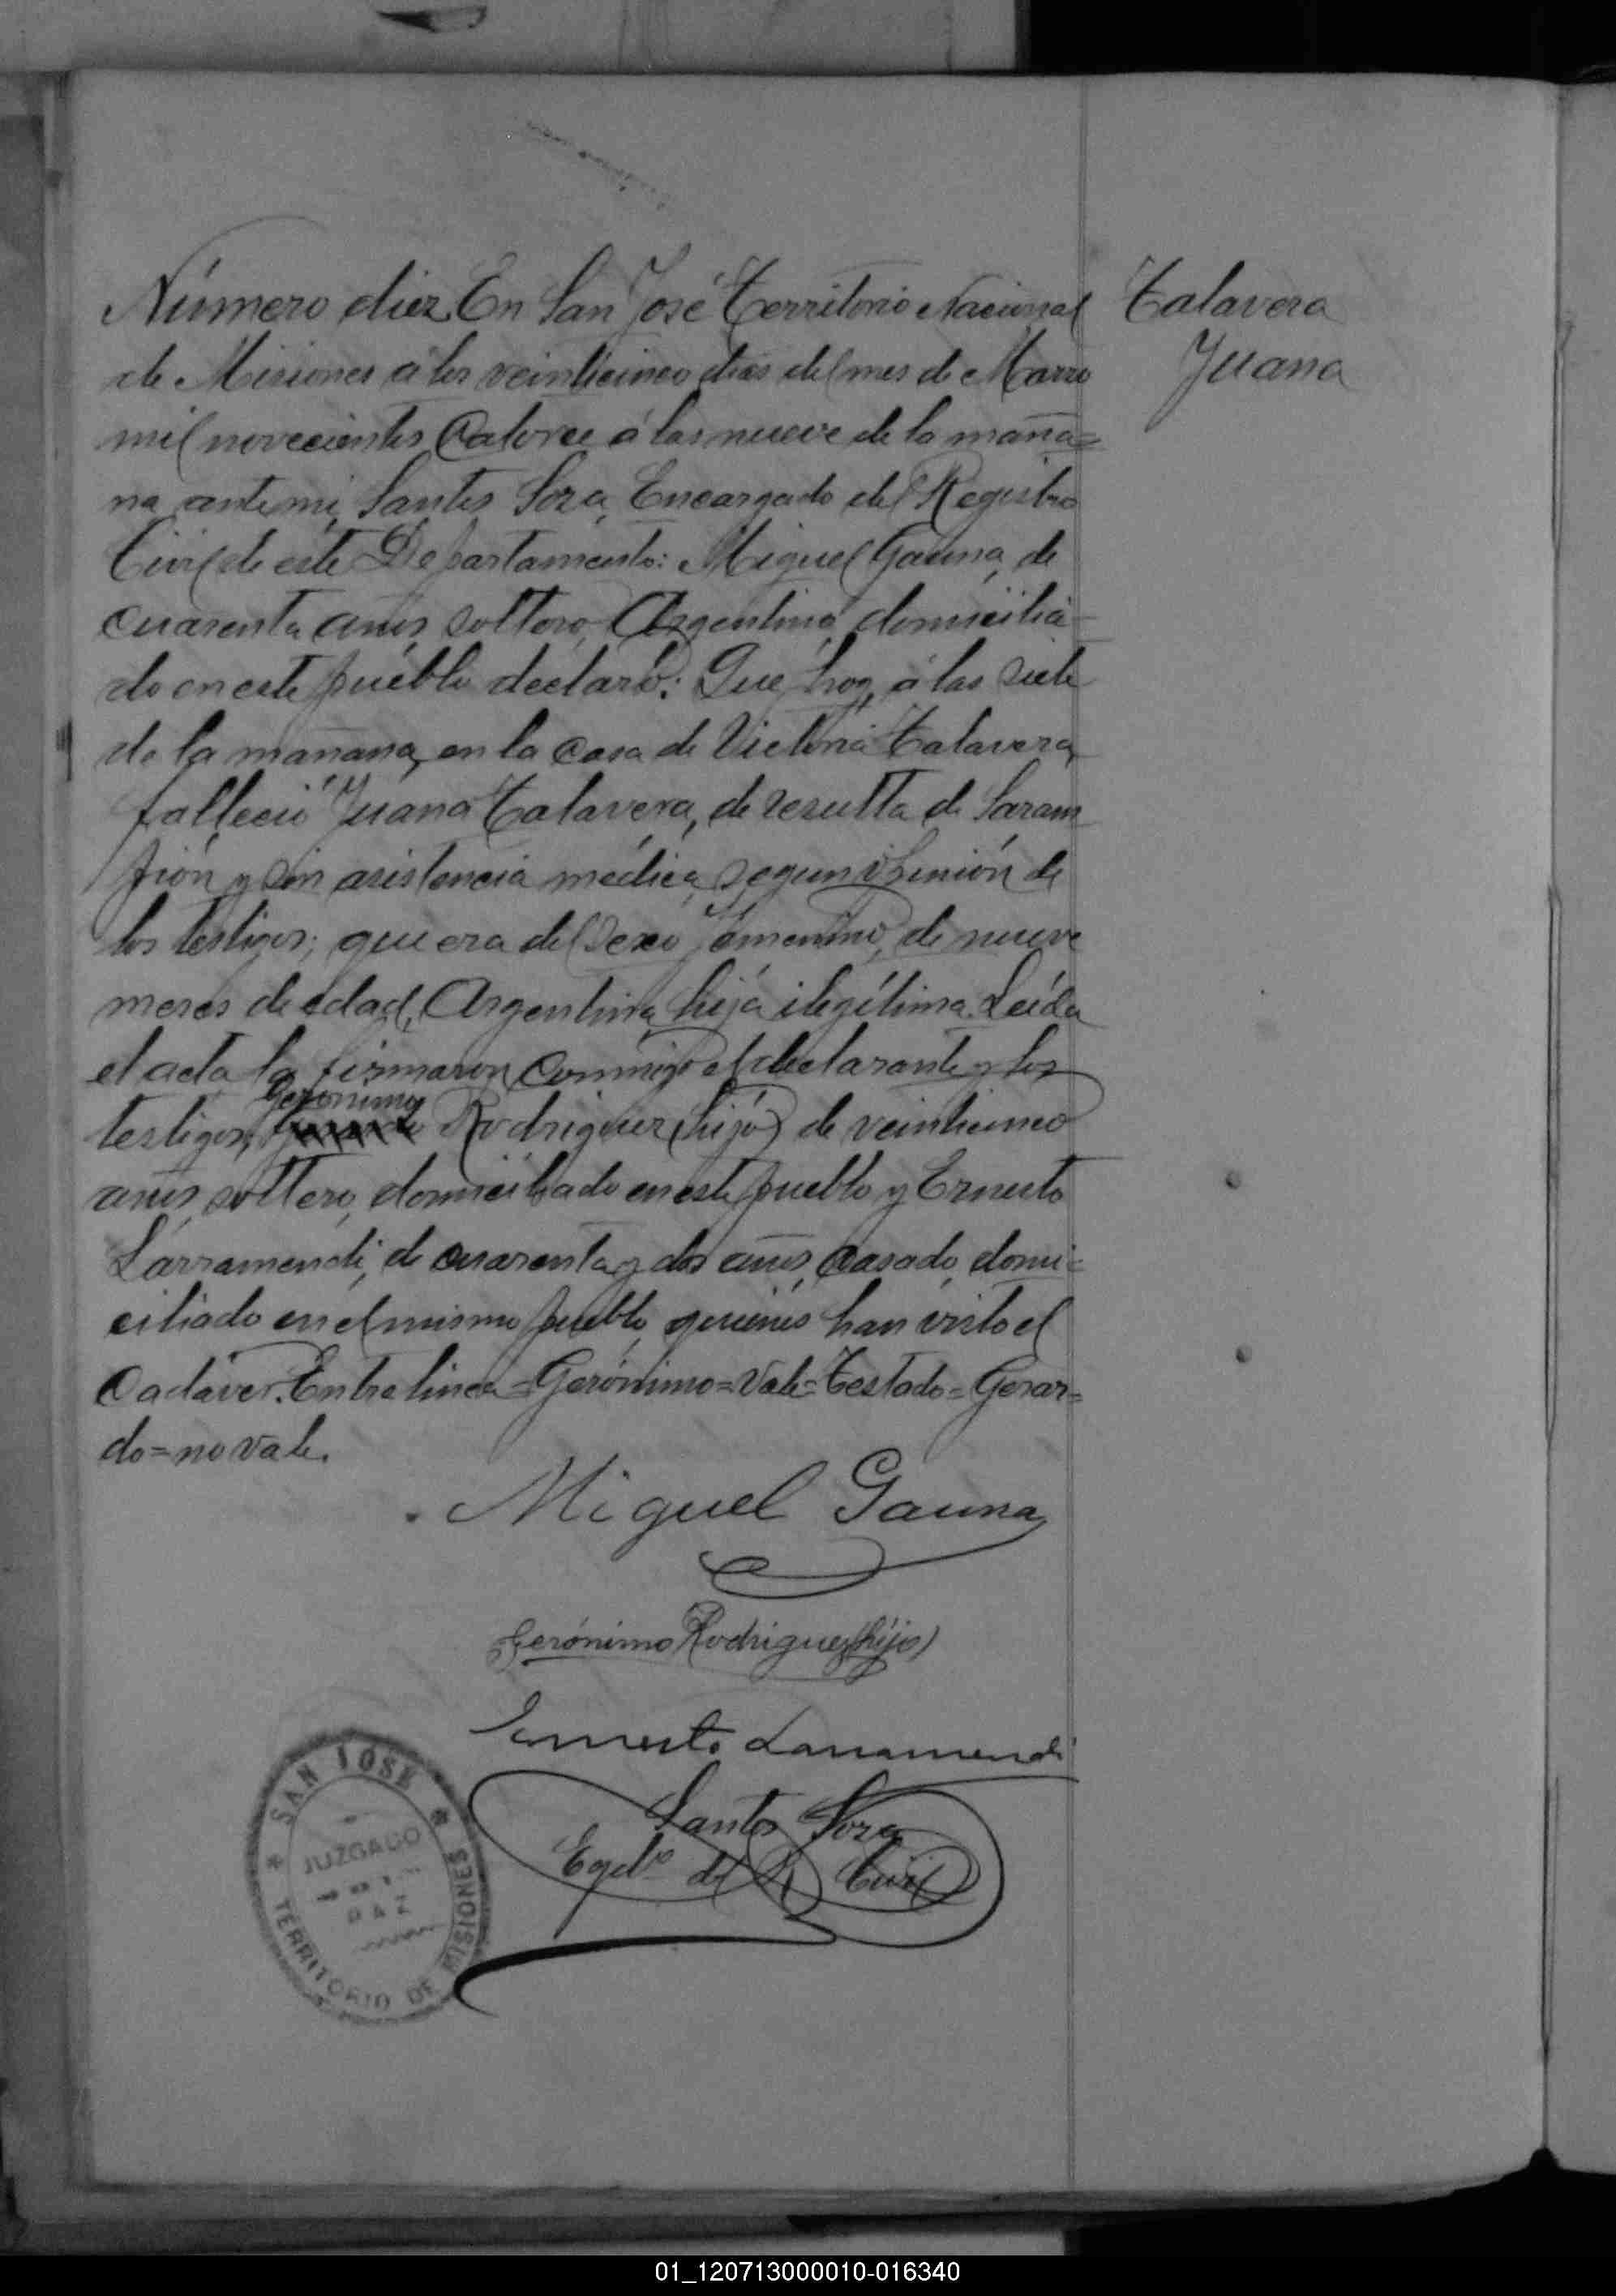 Número diez En San José Territorio Nacional
de Misiones a los veinticinco dias del mes de Marzo
mil novecientos Catorce á las nueve de la maña=
na ante mi, Santos Soza, Encargado del Registro
Civil de este Departamento: Miguel Gauna, de
cuarenta años, soltero, Argentino, domicilia-
do en este pueblo declaró: Que hoy, á las siete
de la mañana, en la Casa de Victoria Talavera,
falleció Juana Talavera, de resulta de Saram-
pión y sin asistencia médica, segun opinión de
los testigos; que era del sexo femenino, de nueve
meses de edad, Argentina, hija ilegítima. Leída
el acta la firmaron conmigo el declarante y los
Gerónimo
testigos, Gerardo Rodriguez (hijo) de veinticinco
años, soltero, domiciliado en este pueblo y Ernesto
Larramendi, de cuarenta y dos años, Casado, domi=
ciliado en el mismo pueblo, quienes han visto el
Cadáver. Entre linea=Gerónimo=Vale=Testado=Gerar=
do=no vale.
Miguel Gauna
Gerónimo Rodriguez (hijo)
Ernesto Larramendi
Santos Soza
del R Civil
Talavera
Juana
SAN JOSE
JUZGADO
PAZ
TERRITORIO DE MISIONES
01_120713000010-016340